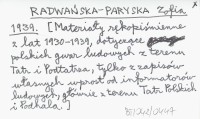 RADWAŃSKA-PARYSKA Zofia
1939. [Materiały rękopiśmienne
z lat 1930-1939, dotyczące
polskich gwar ludowych z terenu
Tatr i Podtatrza, tylko z zapisów
własnych wprost od informatorów
ludowych, głównie z terenu Tatr Polskich
i Podhala]